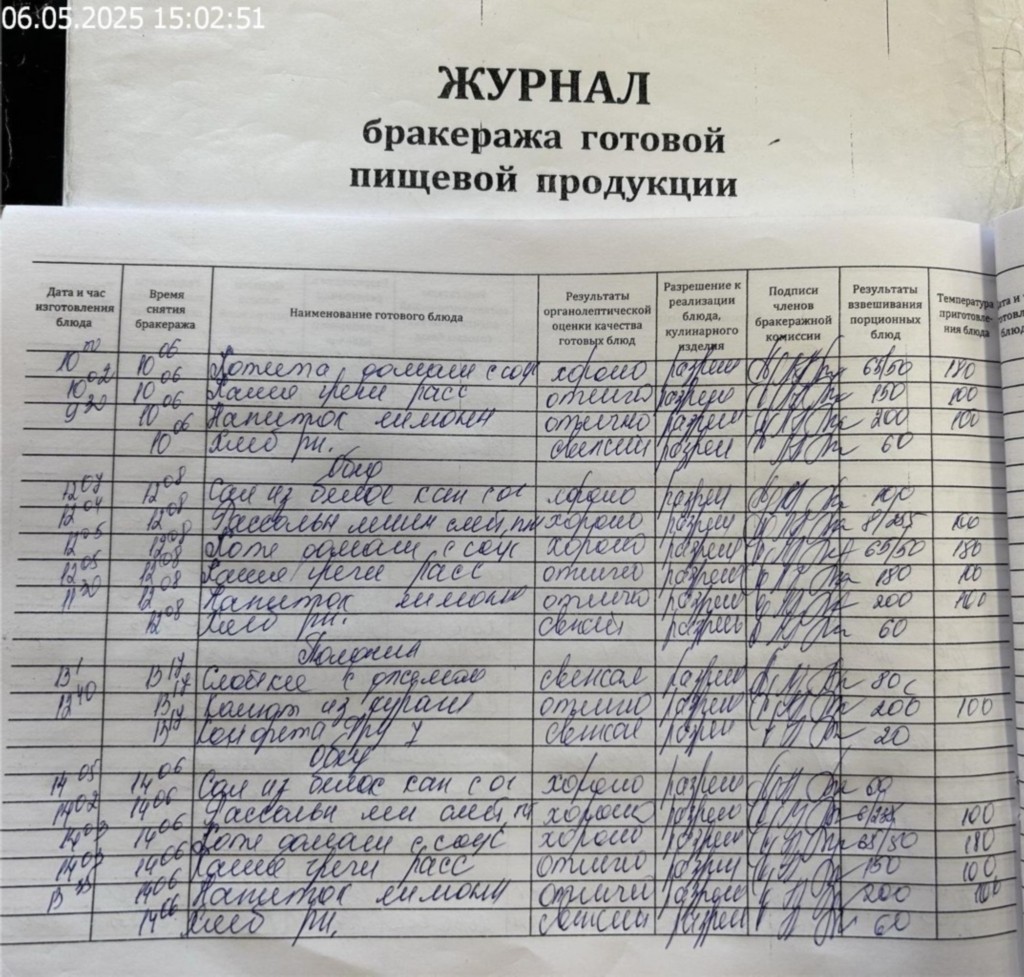 06.05.2025 15:02:51
ЖУРНАЛ
бракеража готовой
пищевой продукции
Дата и час изготовления блюда
Время снятия бракеража
Наименование готового блюда
Результаты органолептической оценки качества готовых блюд
Разрешение к реализации блюда, кулинарного изделия
Подписи членов бракеражной комиссии
Результаты взвешивания порционных блюд
Температура приготовле-ния блюда
10 00 10 06 Котлета домаш с соус хорошо разреш 65/50 180
10 02 10 06 Каша гречн расс отлично разреш 150 100
9 30 10 06 Напиток лимонн отлично разреш 200 100
10 06 Хлеб рж. свежий разреш 60
Обед
12 07 12 08 Сал из белок кап с ог хорошо разреш 100
12 04 12 08 Рассольн ленин хорошо разреш 100
12 05 12 08 Котле домаш с соус хорошо разреш 65/50 180
12 05 12 08 Каша гречн расс отлично разреш 180 100
11 30 12 08 Напиток лимонн отлично разреш 200 100
12 08 Хлеб рж. свежий разреш 60
Полдник
13 17 Слойка с джемом свежая разреш 80
12 40 13 17 Компот из кураги отлично разреш 200 100
13 17 Конфета свежая разреш 20
Обед
14 05 14 06 Сал из белок кап с ог хорошо разреш 60
14 02 14 06 Рассольн лен хорошо разреш 100
14 03 14 06 Котле домаш с соус хорошо разреш 65/50 180
14 03 14 06 Каша гречн расс отлично разреш 150 100
14 06 Напиток лимонн отлично разреш 200 100
14 06 Хлеб рж. свежий разреш 60